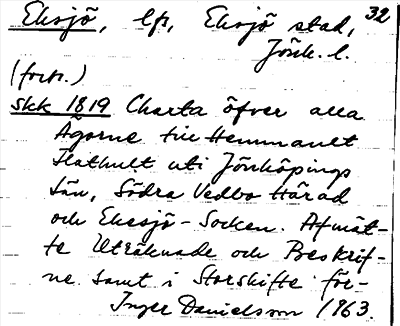 Eksjö, lfs, Eksjö stad, 32
Jönk. l.
(forts.)
skk 1819 Charta öfver alla
Ägorne till Hemmanet
uti Jönköpings
Län, Södra Vedbo Härad
och Ekesjö-Socken. Afmät-
te Uträknade och Beskrif-
ne samt i Storskifte för-
Inger Danielsson 1963.